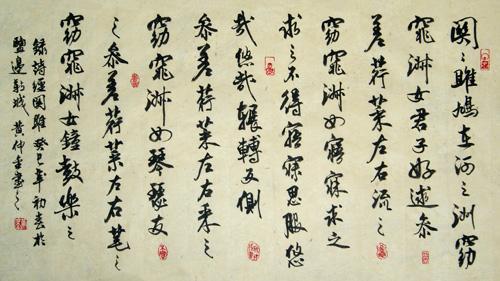 関〻雎鳩在河之洲窈
窕淋女君子好逑参
差荇菜左右流之
窈窕淋女寤寐求之
求之不得寤寐思服悠
哉悠哉輾轉反側
参差荇菜左右采之
窈窕淋女琴瑟友
之参差荇菜左右芼之
窈窕淋女鐘鼓樂之
錄詩經関雎癸巳年初春於
鹽邊新城 黄仲書之